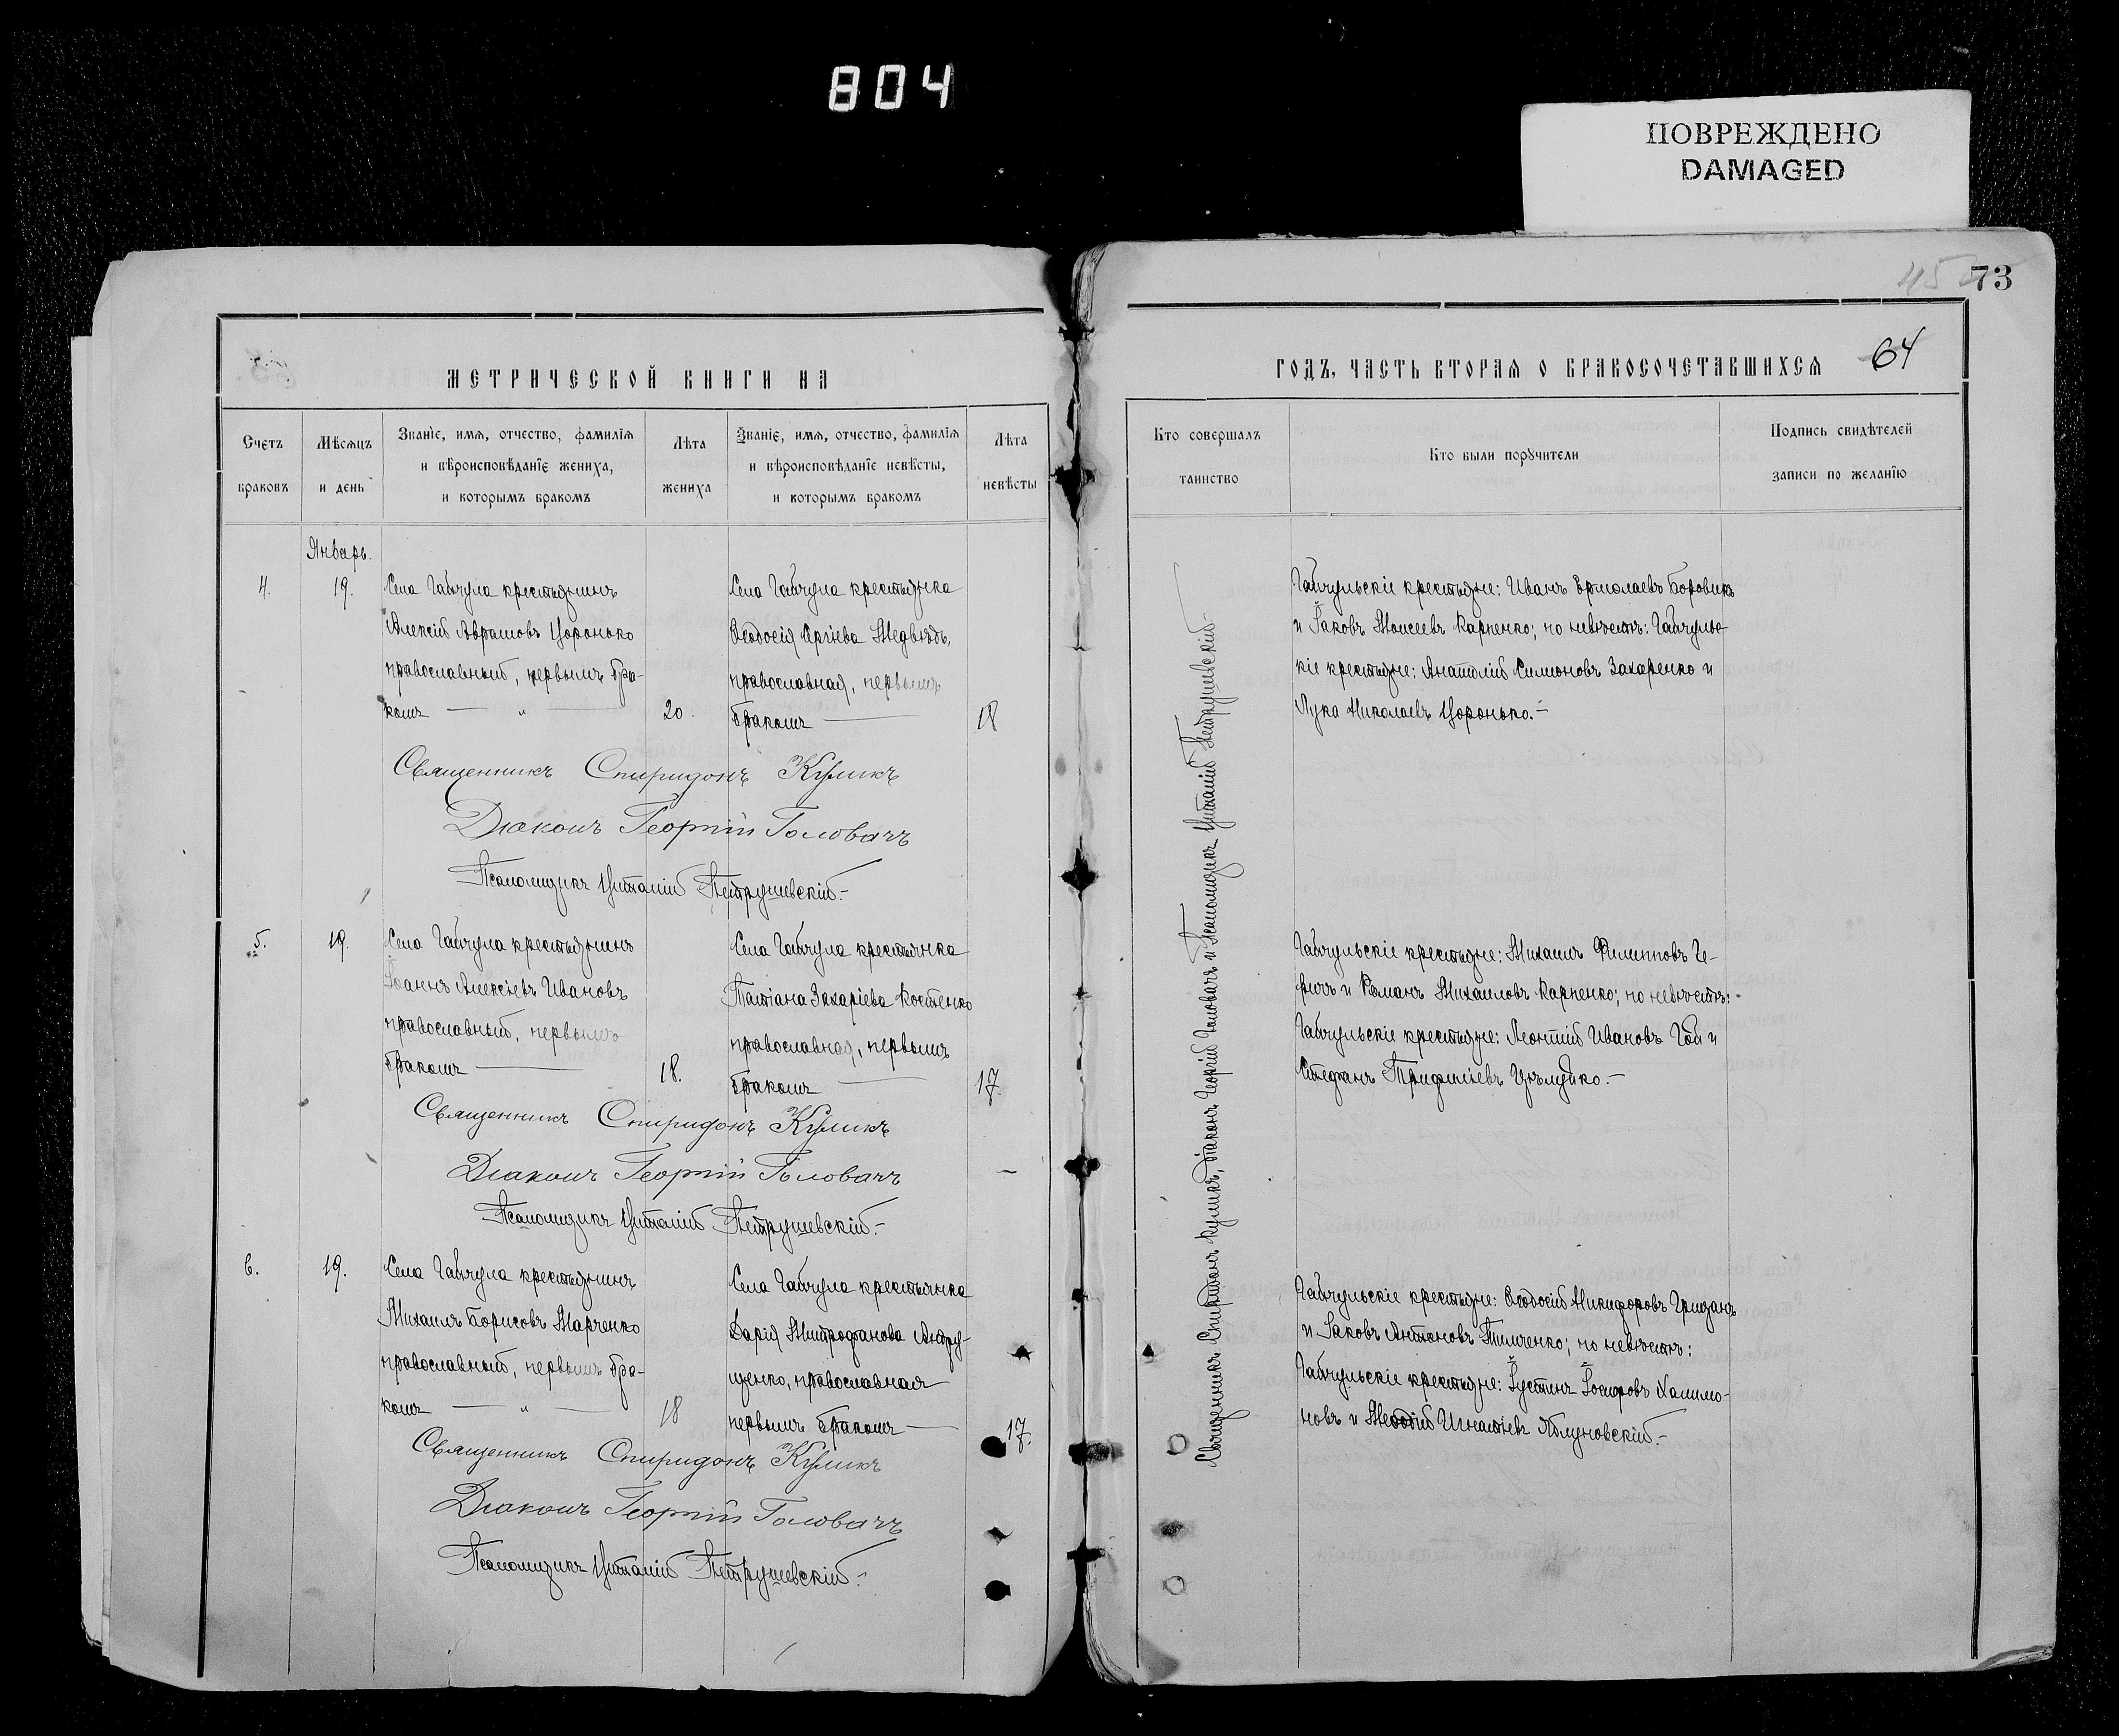 804
ПОВРЕЖДЕНО
DAMAGED
73
64
МЕТРИЧЕСКОЙ КНИГИ НА
Счетъ браковъ
Мѣсяцъ и день
Званіе, имя, отчество, фамилія
и вѣроисповѣданіе жениха,
и которымъ бракомъ
Лѣта жениха
Званіе, имя, отчество, фамилія
и вѣроисповѣданіе невѣсты,
и которымъ бракомъ
Лѣта невѣсты
Январь.
4.
19.
Села Гайчула крестьянинъ
Алексій Аврамовъ Цоронько
православный, первымъ бра-
комъ — „ —
20.
Села Гайчула крестьянка
Ѳеодосія Сергіева Медвѣдь,
православная, первымъ
бракомъ —
18
Священникъ Спиридонъ Куликъ
Діаконъ Георгій Головачъ
Псаломщикъ Виталій Петрушевскій.-
5.
19.
Села Гайчула крестьянинъ
Іоаннъ Алексіевъ Ивановъ
православный, первымъ
бракомъ —
18.
Села Гайчула крестьянка
Татіана Захаріева Костенко
православная, первымъ
бракомъ —
17.
Священникъ Спиридонъ Куликъ
Діаконъ Георгій Головачъ
Псаломщикъ Виталій Петрушевскій.-
6.
19.
Села Гайчула крестьянинъ
Михаилъ Борисовъ Марченко
православный, первымъ бра-
комъ — „ —
18
Села Гайчула крестьянка
Дарія Митрофанова Андру-
щенко, православная
первымъ бракомъ —
17.
Священникъ Спиридонъ Куликъ
Діаконъ Георгій Головачъ
Псаломщикъ Виталій Петрушевскій.-
ГОДЪ, ЧАСТЬ ВТОРАЯ О БРАКОСОЧЕТАВШИХСЯ
Кто совершалъ таинство
Кто были поручители
Подпись свидѣтелей
записи по желанію
Священникъ Спиридонъ Куликъ, Діаконъ Георгій Головачъ и Псаломщикъ Виталій Петрушевскій
Гайчульскіе крестьяне: Иванъ Ермолаевъ Боровикъ
и Іаковъ Моисеевъ Карпенко; по невѣстѣ: Гайчульс-
кіе крестьяне: Анатолій Симоновъ Захаренко и
Лука Николаевъ Цоронько.-
Гайчульскіе крестьяне: Михаилъ Филипповъ
и Романъ Михаиловъ Карпенко; по невѣстѣ:
Гайчульскіе крестьяне: Леонтій Ивановъ и
Стефанъ
Гайчульскіе крестьяне: Ѳеодосій Никифоровъ
и Іаковъ Антоновъ Тимченко; по невѣстѣ:
Гайчульскіе крестьяне: Іустинъ Іосифовъ Халимо-
новъ и Меѳодій Игнатіевъ Яблуновскій.-